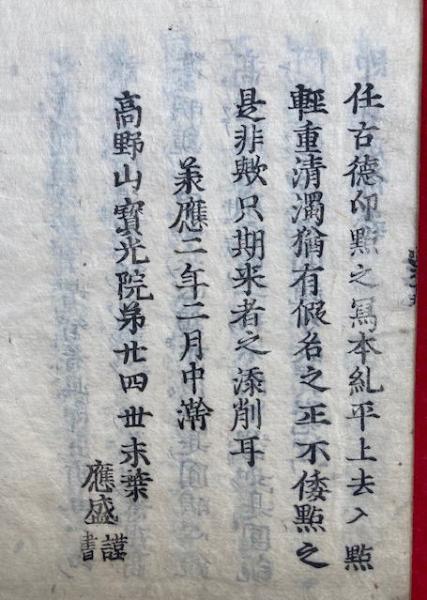 任古德印點之寫本糺平上去入點
輕重清濁猶有假名之正不倭點之
是非歟只期來者之添削耳
承應二年二月中澣
高野山寳光院第廿四世末葉
應盛謹書